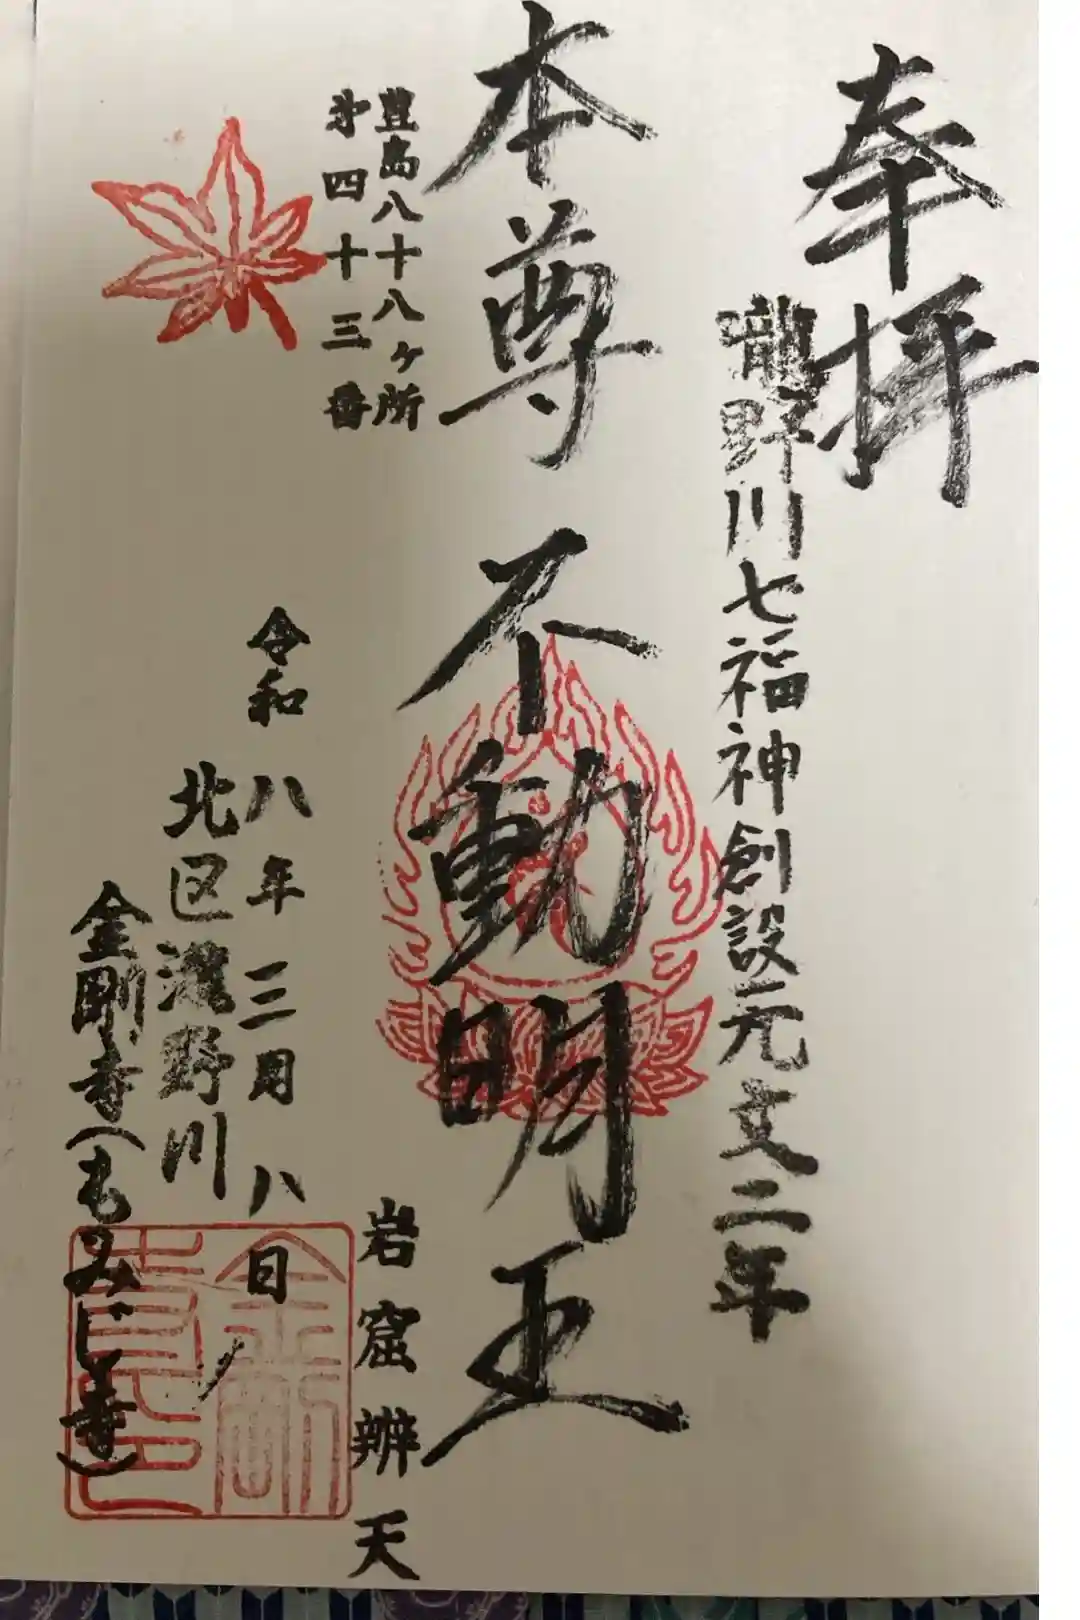 奉拝
瀧野川七福神創設元文二年
本尊 不動明王
岩窟辨天
豊島八十八ヶ所
第四十三番
令和八年三月八日
北区瀧野川
金剛寺(もみじ寺)